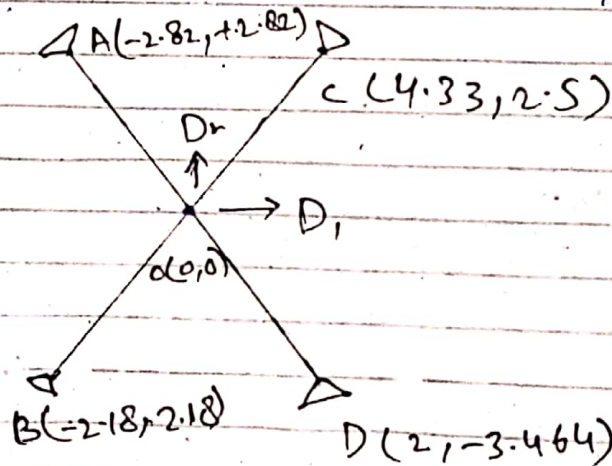 A(-2.82, +2.82)
C (4.33, 2.5)
Dr
D,
O(0,0)
B(-2.18, 2.18)
D (2, -3.464)